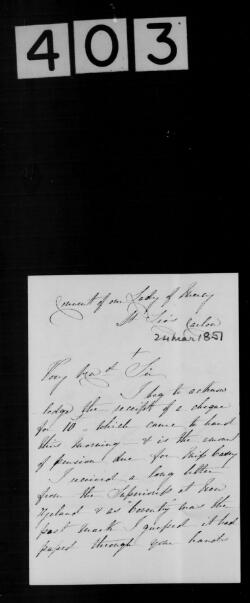 403
Convent of our Lady of Mercy
St Leo's Carlow
24 Mar 1851
+
Very Revd Sir
I beg to acknow
ledge the receipt of a cheque
for 10 which came to hand
this morning & is the amount
of pension due for Miss
I received a long letter
from the Superioress at New
Zealand & as Coventry was the
post mark I guessed it had
passed through your hands